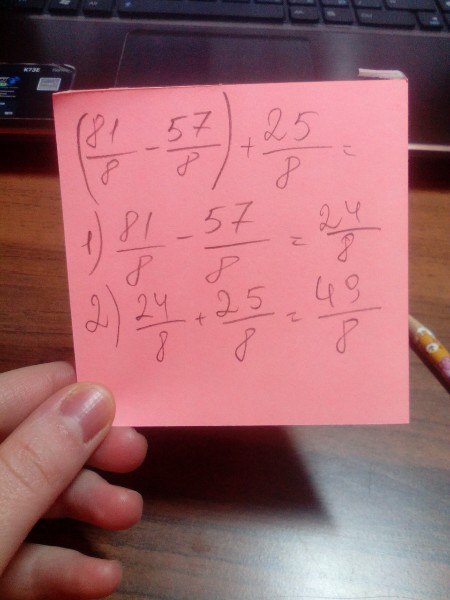 K73E
(81/8 - 57/8) + 25/8 =
1) 81/8 - 57/8 = 24/8
2) 24/8 + 25/8 = 49/8